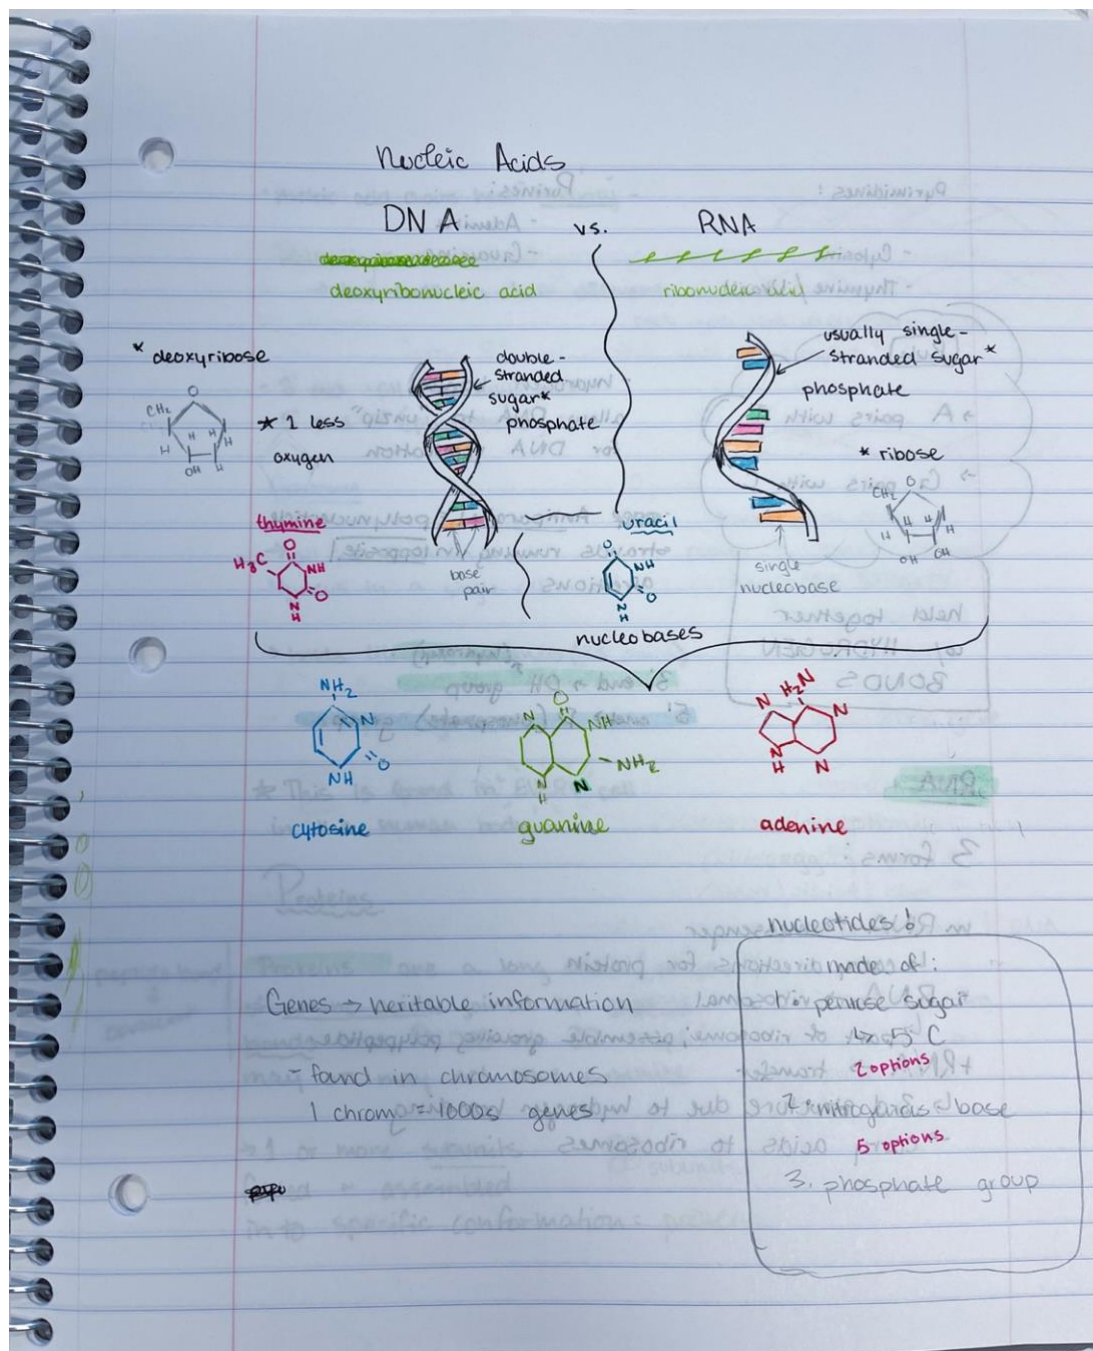 Nucleic Acids
DNA vs. RNA
deoxyribonucleic acid
ribonucleic acid
* deoxyribose
* 1 less
oxygen
O
CH₂
H H H
H
OH H
double-
stranded
sugar*
phosphate
usually single-
stranded sugar*
phosphate
* ribose
O
CH₂
H H H
H
OH OH
thymine
H₃C
O
NH
O
N
H
base
pair
uracil
O
NH
O
N
H
single
nucleobase
nucleobases
NH₂
N
O
NH
cytosine
O
N NH
NH₂
N N
H
guanine
H₂N
N N
N N
H
adenine
Genes → heritable information
- found in chromosomes
1 chrom = 1000s genes
nucleotides!
made of:
1. pentose sugar
↳ 5 C
2 options
2. nitrogenous base
5 options
3. phosphate group